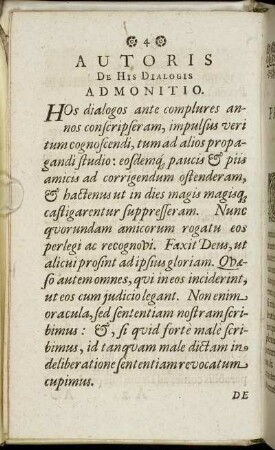 4
AUTORIS
DE HIS DIALOGIS
ADMONITIO.
HOs dialogos ante complures an-
nos conscripseram, impulsus veri
tum cognoscendi, tum ad alios propa-
gandi studio: eosdemq; paucis & piis
amicis ad corrigendum ostenderam,
& hactenus ut in dies magis magisq;
castigarentur suppresseram. Nunc
quorundam amicorum rogatu eos
perlegi ac recognovi. Faxit Deus, ut
alicui prosint ad ipsius gloriam. Quæ-
so autem omnes, qui in eos inciderint,
ut eos cum judicio legant. Non enim
oracula, sed sententiam nostram scri-
bimus: &, si quid forte male scri-
bimus, id tanquam male dictam in-
deliberatione sententiam revocatum
cupimus.
DE